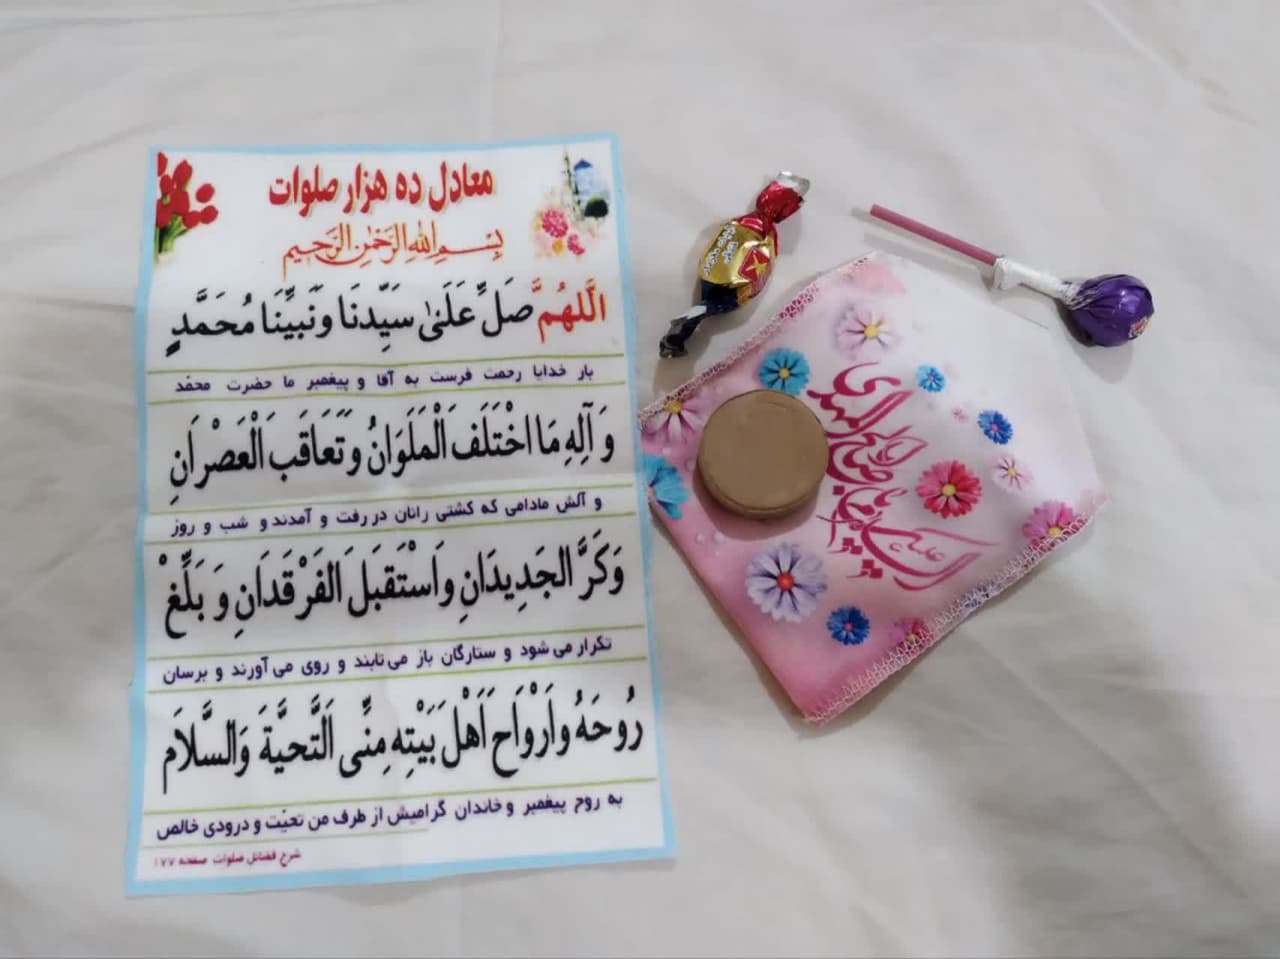 معادل ده هزار صلوات
بِسْمِ اللهِ الرَّحْمٰنِ الرَّحیمِ
الَّلهُمَّ صَلِّ عَلَیٰ سَیِّدِنَا وَنَبِیِّنَا مُحَمَّدٍ
بار خدایا رحمت فرست به آقا و پیغمبر ما حضرت محمّد
وَ آلِهِ مَا اخْتَلَفَ الْمَلَوَانُ وَتَعَاقَبَ الْعَصْرَانِ
و آلش مادامی که کشتی رانان در رفت و آمدند و شب و روز
وَکَرَّ الجَدِیدَانِ وَاسْتَقبَلَ الفَرْقَدَانِ وَ بَلِّغْ
تکرار می شود و ستارگان باز می تابند و روی می آورند و برسان
رُوحَهُ وَاَرْوَاحَ اَهْلَ بَیْتِهِ مِنِّی اَلتَّحیَّةَ وَالسَّلاَم
به روح پیغمبر و خاندان گرامیش از طرف من تحیّت و درودی خالص
شرح فضائل صلوات صفحه ۱۷۷
السلام علیک یا اباصالح المهدی